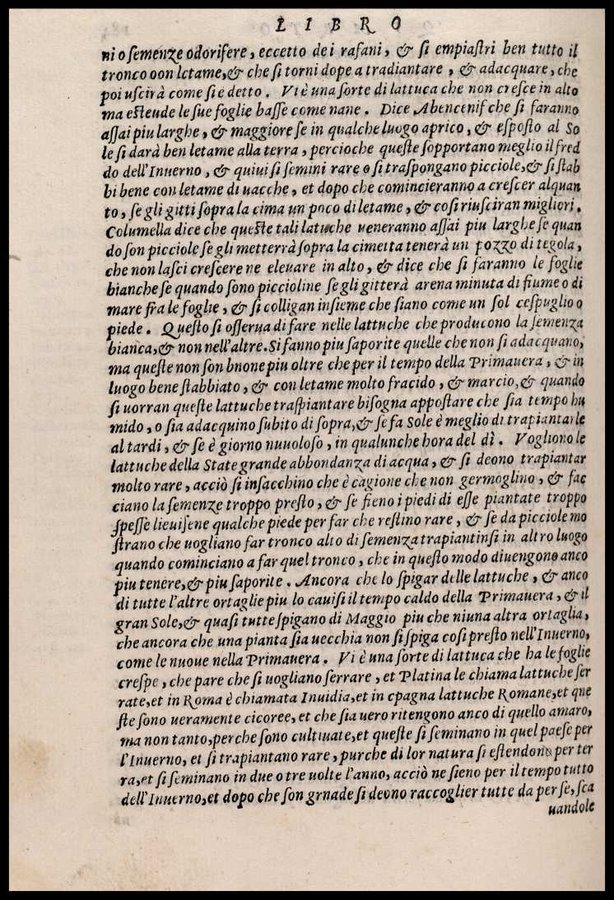 LIBRO
ni o semenze odorifere, eccetto de i rafani, & si empiastri ben tutto il
tronco oon letame, & che si torni dope a tradiantare, & adacquare, che
poi uscirà come si è detto. Vi è una sorte di lattuca che non cresce in alto
ma estende le sue foglie basse come nane. Dice Abencenif che si faranno
assai piu larghe, & maggiore se in qualche luogo aprico, & esposto al So
le si darà ben letame alla terra, percioche queste sopportano meglio il fred
do dell'Inuerno, & quiui si semini rare o si traspongano picciole, & si stab
bi bene con letame di uacche, et dopo che comincieranno a crescer alquan
to, se gli gitti sopra la cima un poco di letame, & cosi riusciran migliori.
Columella dice che queste tali latuche ueneranno assai piu larghe se quan
do son picciole se gli metterrà sopra la cimetta tenerà un pozzo di tegola,
che non lasci crescere ne eleuare in alto, & dice che si faranno le foglie
bianche se quando sono piccioline se gli gitterà arena minuta di fiume o di
mare fra le foglie, & si colligan insieme che siano come un sol cespuglio o
piede. Questo si osserua di fare nelle lattuche che producono la semenza
bianca, & non nell'altre. Si fanno piu saporite quelle che non si adacquano,
ma queste non son bnone piu oltre che per il tempo della Primauera, & in
luogo bene stabbiato, & con letame molto fracido, & marcio, & quando
si uorran queste lattuche traspiantare bisogna appostare che sia tempo hu
mido, o sia adacquino subito di sopra, & se fa Sole è meglio di trapiantarle
al tardi, & se è giorno nuuoloso, in qualunche hora del dì. Vogliono le
lattuche della State grande abbondanza di acqua, & si deono trapiantar
molto rare, acciò si insacchino che è cagione che non germoglino, & fac
ciano la semenze troppo presto, & se sieno i piedi di esse piantate troppo
spesse lieuisene qualche piede per far che restino rare, & se da picciole mo
strano che uogliano far tronco alto di semenza trapiantinsi in altro luogo
quando cominciano a far quel tronco, che in questo modo diuengono anco
piu tenere, & piu saporite. Ancora che lo spigar delle lattuche, & anco
di tutte l'altre ortaglie piu lo cauisi il tempo caldo della Primauera, & il
gran Sole, & quasi tutte spigano di Maggio piu che niuna altra ortaglia,
che ancora che una pianta sia uecchia non si spiga cosi presto nell'Inuerno,
come le nuoue nella Primauera. Vi è una sorte di lattuca che ha le foglie
crespe, che pare che si uogliano serrare, et Platina le chiama lattuche ser
rate, et in Roma è chiamata Inuidia, et in cpagna lattuche Romane, et que
ste sono ueramente cicoree, et che sia uero ritengono anco di quello amaro,
ma non tanto, perche sono cultiuate, et queste si seminano in quel paese per
l'Inuerno, et si trapiantano rare, purche di lor natura si estendono per ter
ra, et si seminano in due o tre uolte l'anno, acciò ne sieno per il tempo tutto
dell'Inuerno, et dopo che son grnade si deono raccoglier tutte da per se, sca
uandole